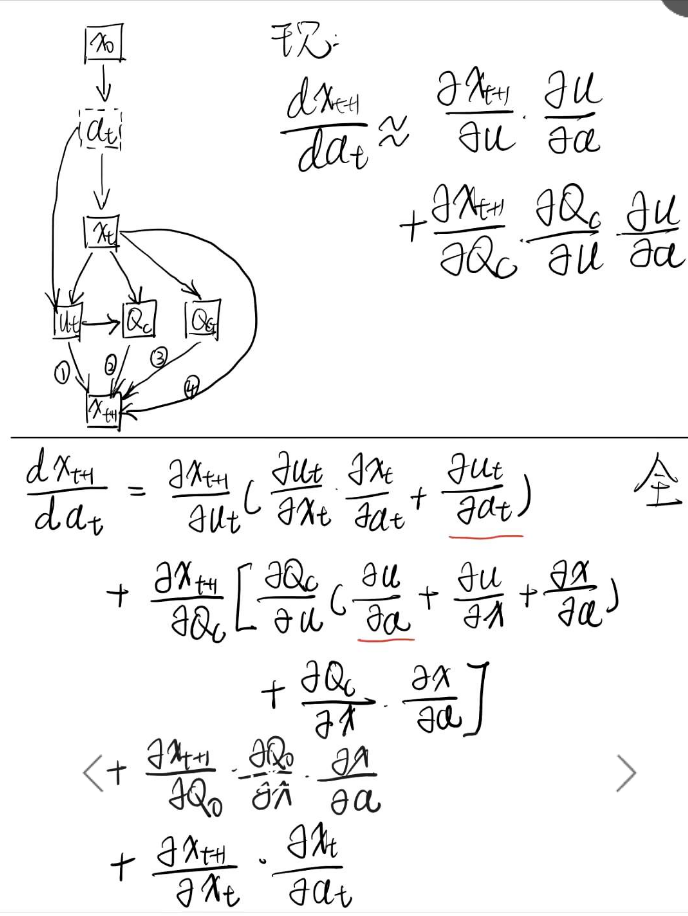 x₀
aₜ
xₜ
uₜ Q_c
① ② ③ ④
xₜ₊₁
现:
dxₜ₊₁/daₜ ≈ ∂xₜ₊₁/∂u · ∂u/∂a
+ ∂xₜ₊₁/∂Q_c · ∂Q_c/∂u · ∂u/∂a
dxₜ₊₁/daₜ = ∂xₜ₊₁/∂uₜ ( ∂uₜ/∂xₜ · ∂xₜ/∂aₜ + ∂uₜ/∂aₜ ) 全
+ ∂xₜ₊₁/∂Q_c [ ∂Q_c/∂u ( ∂u/∂a + ∂u/∂x + ∂x/∂a )
+ ∂Q_c/∂x · ∂x/∂a ]
+ ∂xₜ₊₁/∂Q₀ · ∂Q₀/∂x · ∂x/∂a
+ ∂xₜ₊₁/∂xₜ · ∂xₜ/∂aₜ